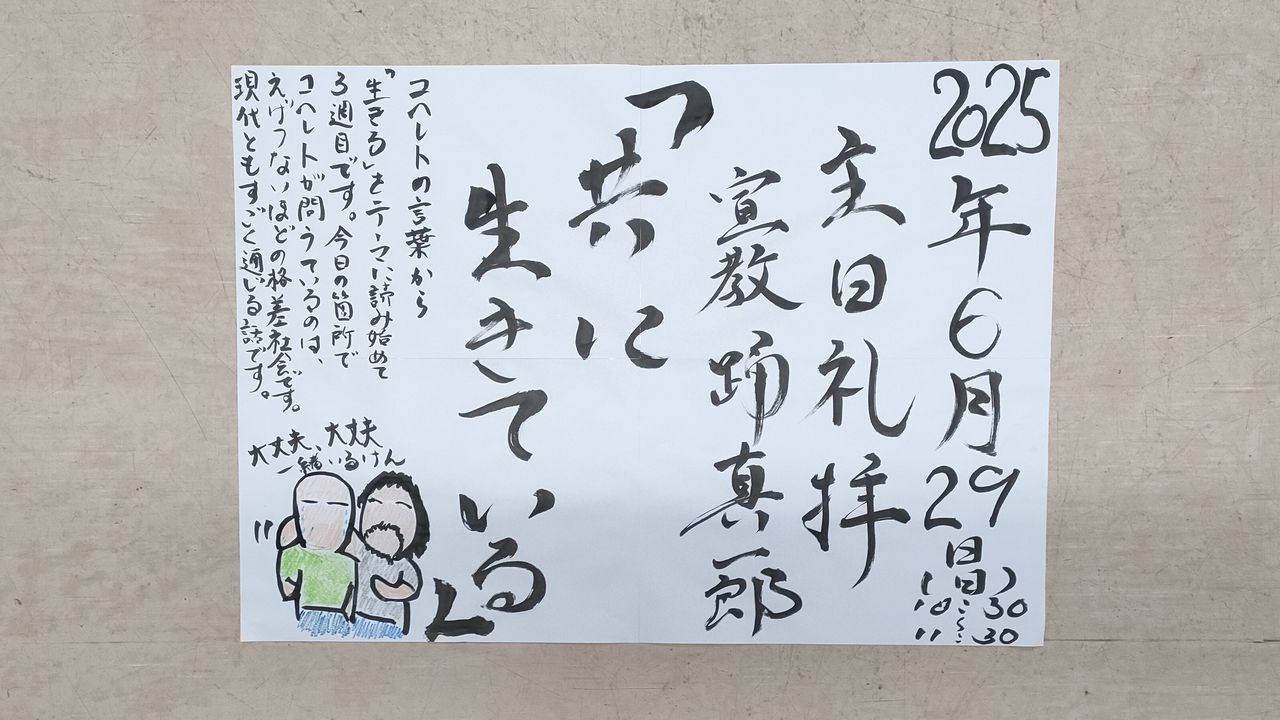 2025年6月29日(日)
10:30〜
11:30
主日礼拝
宣教 踊真一郎
「共に
生きている」
コヘレトの言葉から
「生きる」をテーマに読み始めて
3週目です。今日の箇所で
コヘレトが問うているのは、
えげつないほどの格差社会です。
現代ともすごく通じる話です。
大丈夫、大丈夫
一緒にいるけん